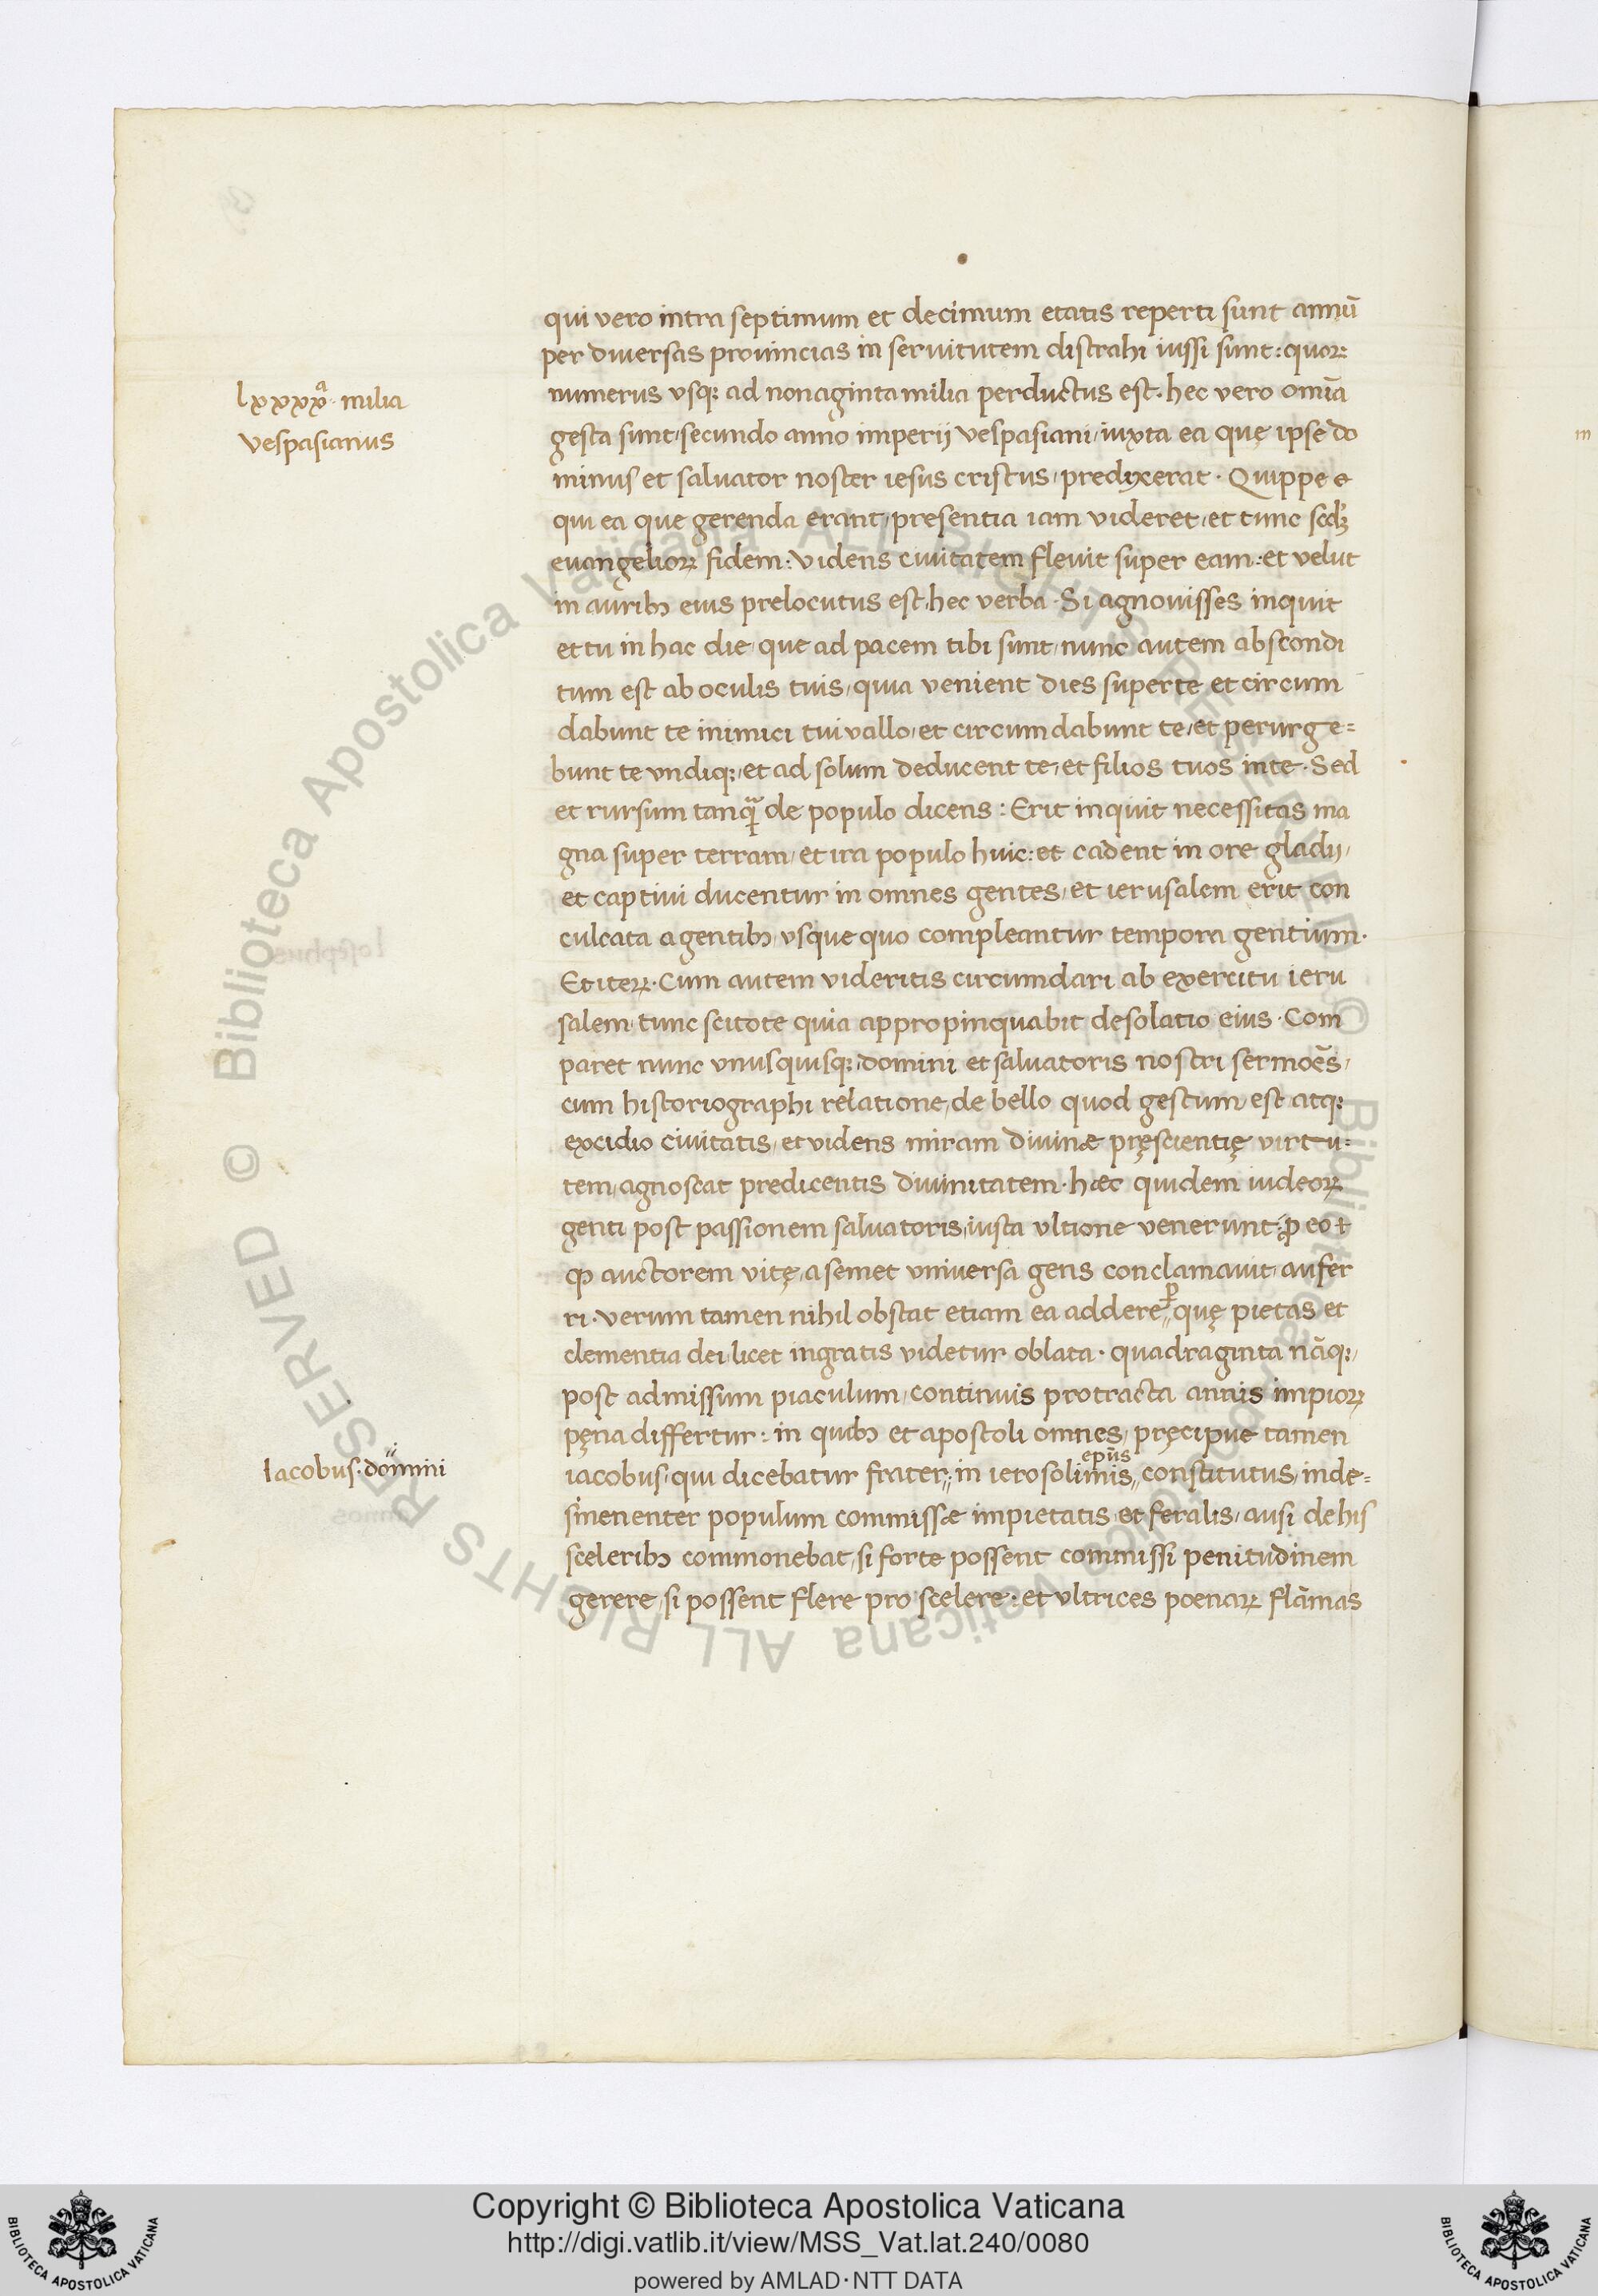 qui vero intra septimum et decimum etatis reperti sunt annū
per diuersas prouincias in seruitutem distrahi iussi sunt: quoꝝ
lxxxxᵃ· milia
numerus vsqꝫ ad nonaginta milia perductus est· hec vero omīa
vespasianus
gesta sunt, secundo anno imperij vespasiani, iuxta ea quę ipse do
minus et saluator noster iesus cristus, predixerat· Quippe e
qui ea que gerenda erant, presentia iam videret, et tunc
euangelioꝝ fidem: videns ciuitatem fleuit super eam: et velut
in auribꝫ eius prelocutus est, hec verba· Si agnouisses inquit
et tu in hac die, que ad pacem tibi sunt, nunc autem abscondi
tum est ab oculis tuis, quia venient dies super te et circum
dabunt te inimici tui vallo, et circumdabunt te, et perurge=
bunt te vndiqꝫ, et ad solum deducent te, et filios tuos in te· Sed
et rursum tanqᷓ de populo dicens: Erit inquit necessitas ma
gna super terram, et ira populo huic: et cadent in ore gladij,
et captiui ducentur in omnes gentes, et ierusalem erit con
culcata a gentibꝫ vsque quo compleantur tempora gentium·
Et iteꝝ· Cum autem videritis circumdari ab exercitu ieru
salem, tunc scitote quia appropinquabit desolatio eius· Com
paret nunc vnusquisqꝫ, domini et saluatoris nostri sermoēs,
cum historiographi relatione, de bello quod gestum est atqꝫ
excidio ciuitatis, et videns miram diuinæ pręscientię virtu=
tem, agnoscat predicentis diuinitatem· hæc quidem iudeoꝝ
genti post passionem saluatoris, iusta vltione venerunt: ꝓ eo
ꝙ auctorem vitę, a semet vniuersa gens conclamauit, aufer
ri· verum tamen nihil obstat etiam ea addere, quę pietas et
clementia dei, licet ingratis videtur oblata· quadraginta nāqꝫ,
post admissum piaculum, continuis protracta annis impioꝝ
pęna differtur: in quibꝫ et apostoli omnes, pręcipue tamen
epūs
Iacobus· domini
iacobus, qui dicebatur frater,, in ierosolimis,, constitutus, inde=
sinenenter populum commissæ impietatis et feralis, ausi de his
sceleribꝫ commonebat, si forte possent commissi penitudinem
gerere, si possent flere pro scelere: et vltrices poenaꝝ flāmas
Copyright © Biblioteca Apostolica Vaticana
http://digi.vatlib.it/view/MSS_Vat.lat.240/0080
powered by AMLAD·NTT DATA
BIBLIOTECA APOSTOLICA VATICANA
BIBLIOTECA APOSTOLICA VATICANA
© Biblioteca Apostolica Vaticana ALL RIGHTS RESERVED © Biblioteca Apostolica Vaticana ALL RIGHTS RESERVED